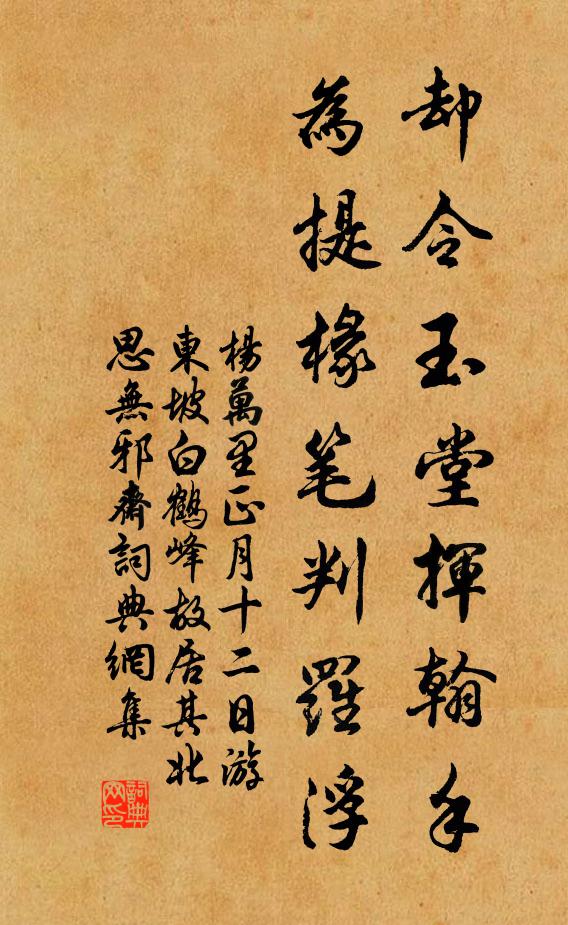 却令玉堂揮翰手
為提椽笔判羅浮
楊萬里正月十二日游
東坡白鶴峰故居其北
思無邪齋詞典網集
詞典网印